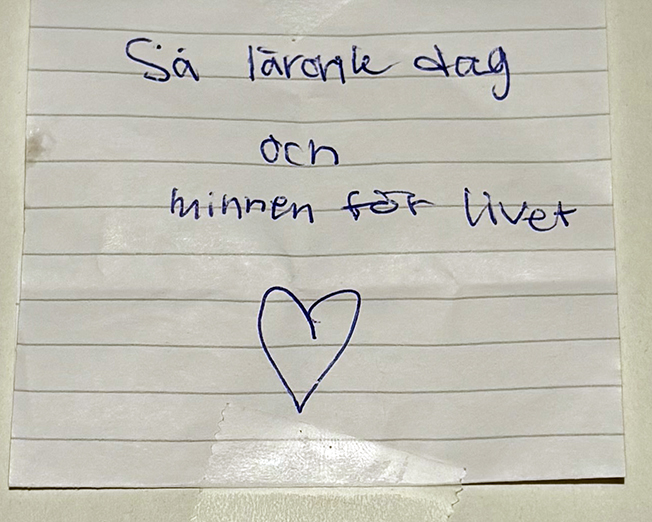 Så lärorik dag
och
minnen för livet